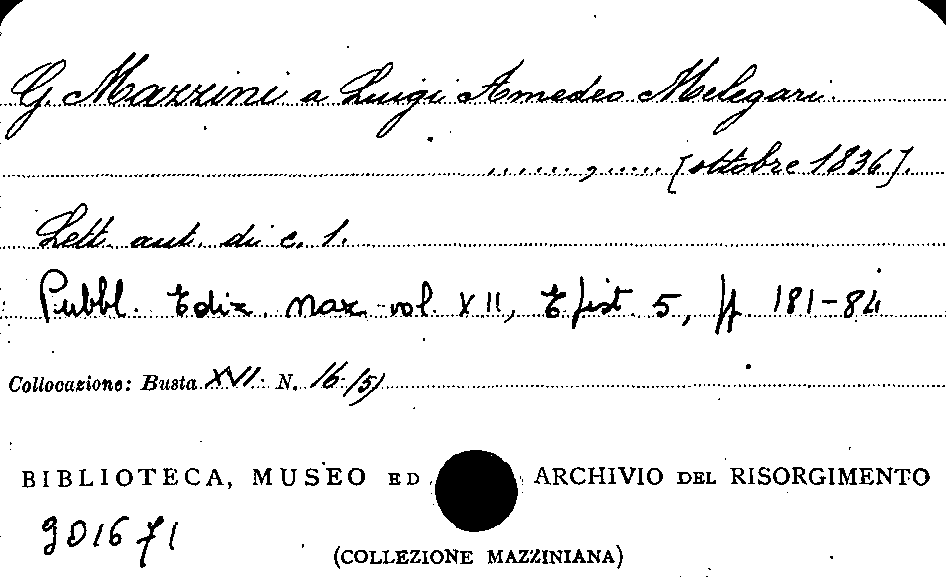 G. Mazzini a Luigi Amedeo Melegari.
......, ..... [ottobre 1836].
Lett. aut. di c. 1.
Pubbl. Ediz. Naz. vol. XII, Epist. 5, pp. 181-84
Collocazione: Busta XVI. N. 16 (5)
BIBLIOTECA, MUSEO ED ARCHIVIO DEL RISORGIMENTO
901671
(COLLEZIONE MAZZINIANA)